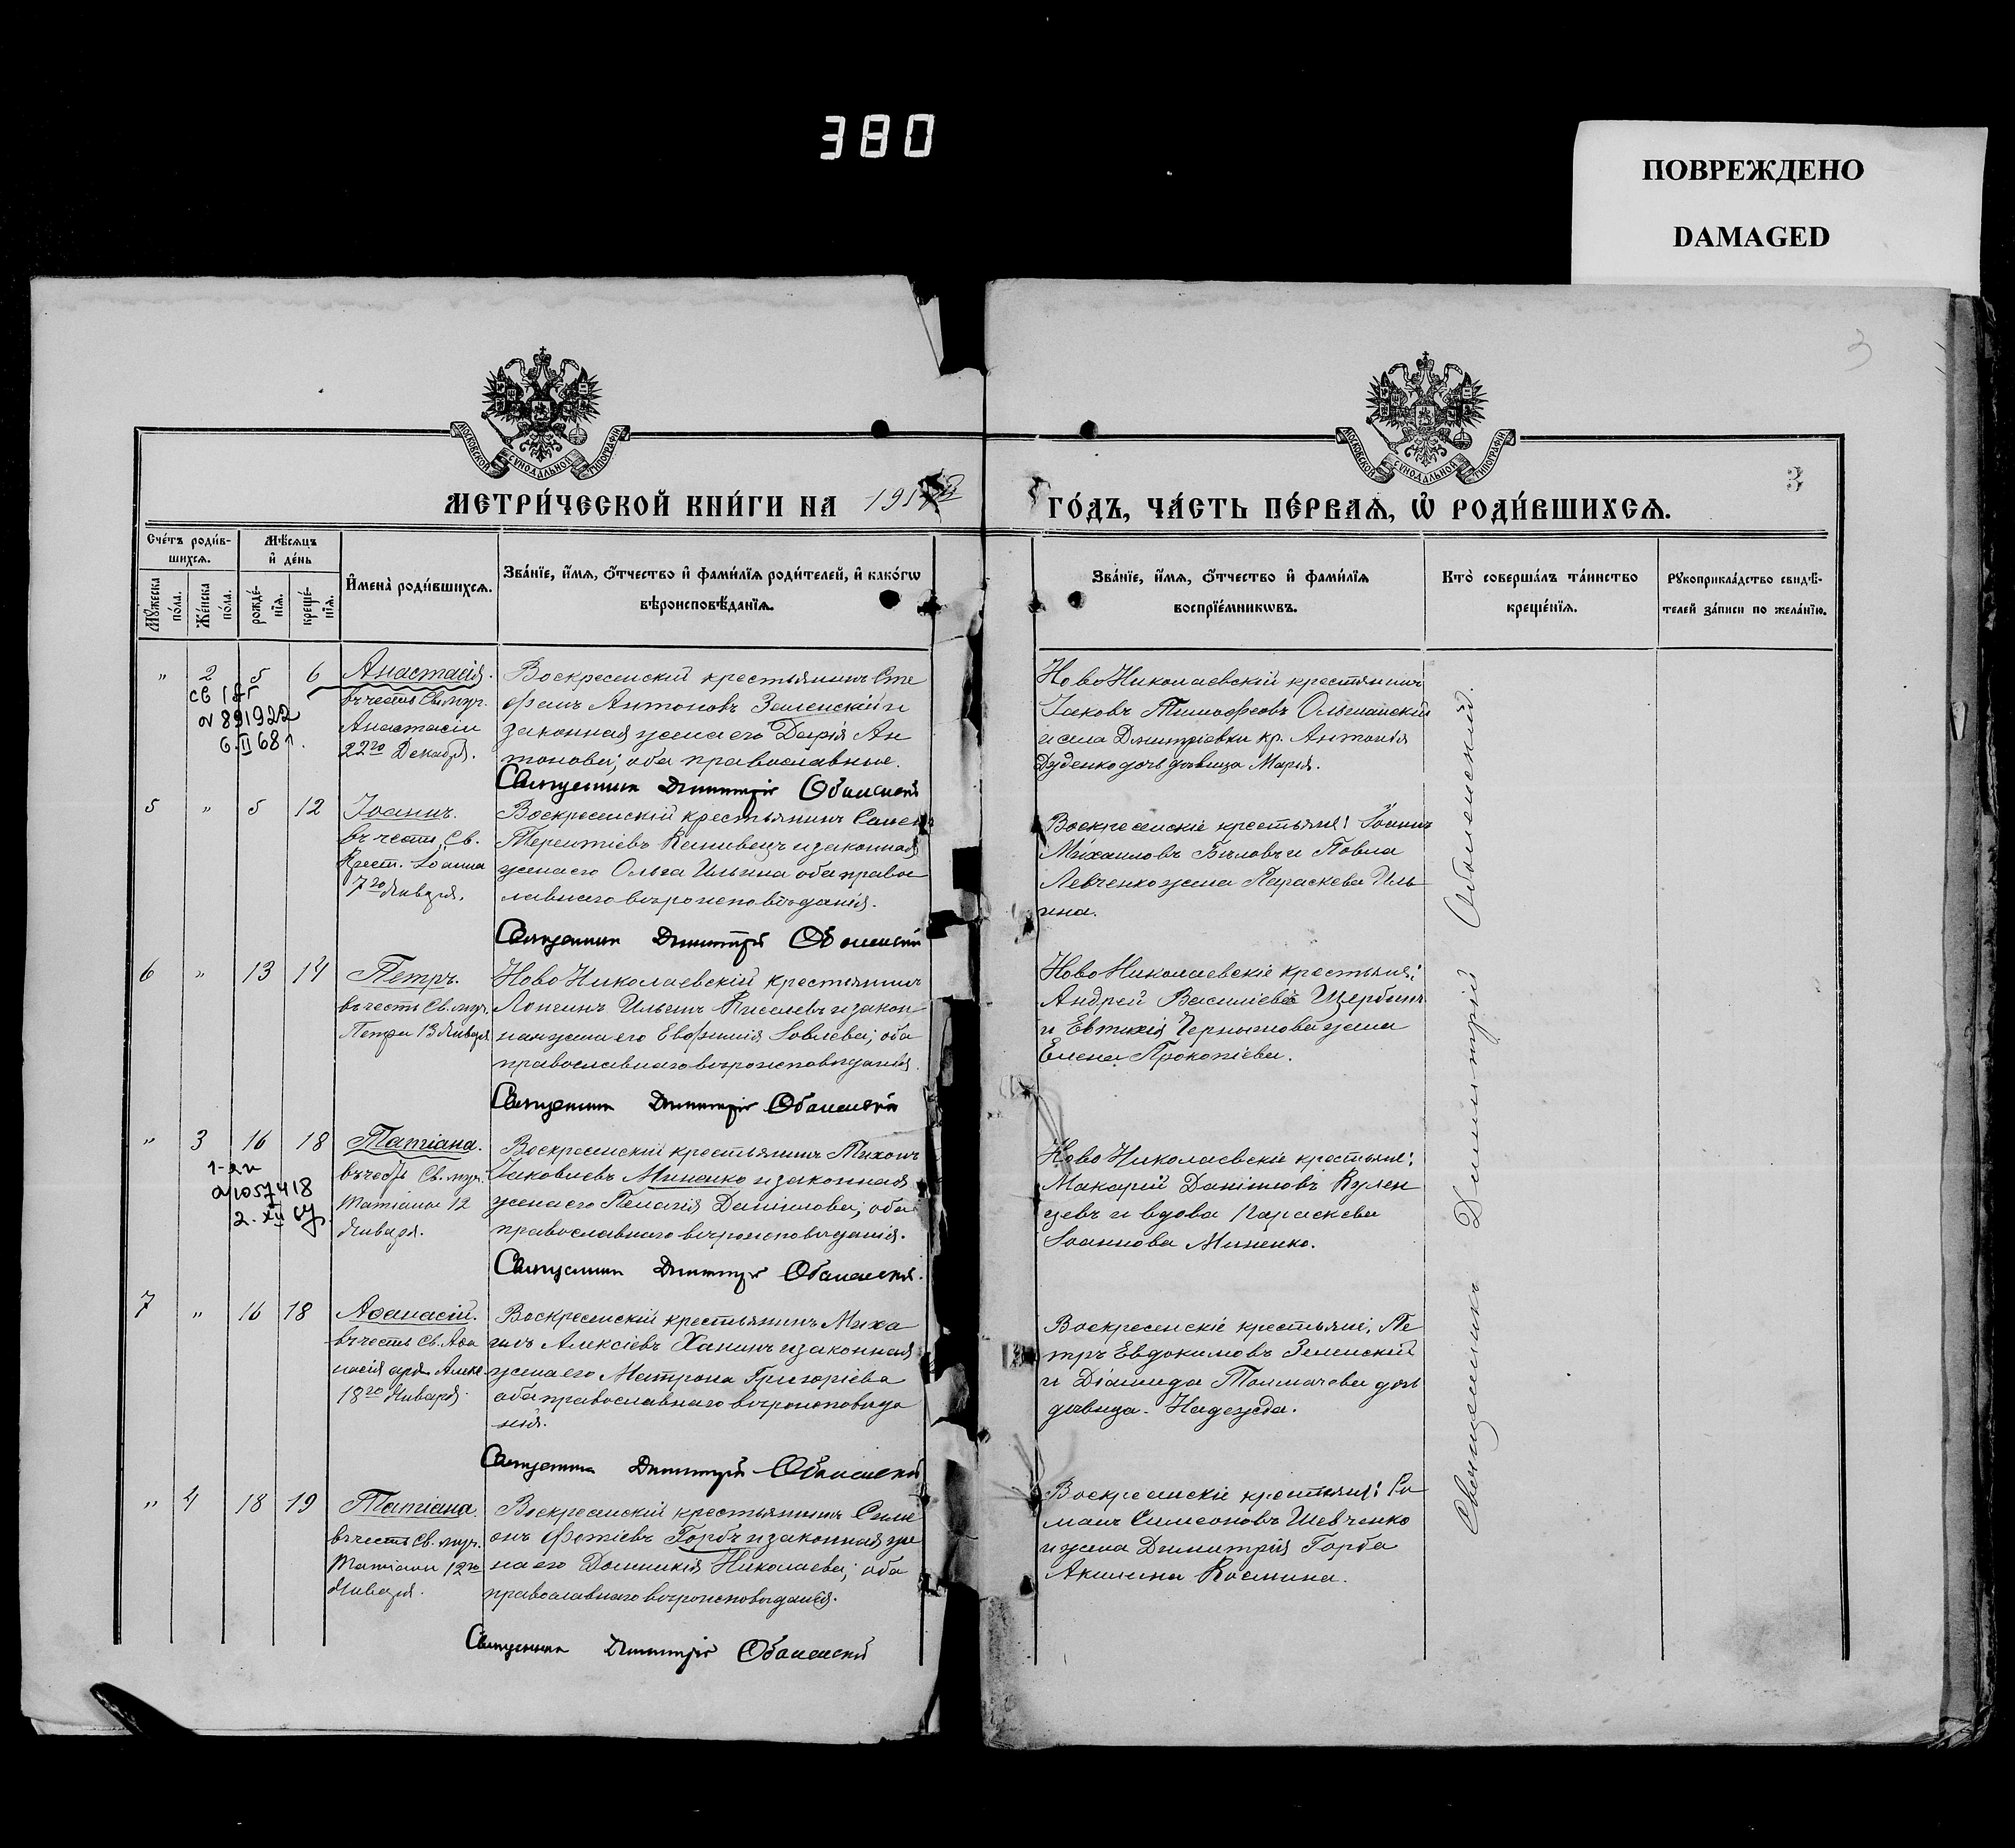 380
ПОВРЕЖДЕНО
DAMAGED
3
3
МОСКОВСКОЙ СѴНОДАЛЬНОЙ ТИПОГРАФІИ
МОСКОВСКОЙ СѴНОДАЛЬНОЙ ТИПОГРАФІИ
МЕТРИ́ЧЕСКОЙ КНИ́ГИ НА 191
ГО́ДЪ, ЧА́СТЬ ПЕ́РВАѦ, Ѡ РОДИ́ВШИХСѦ.
Сче́тъ роди́в-
шихсѧ.
Мѣ́сѧцъ
и҆ де́нь
Мꙋ́жеска по́ла.
Же́нска по́ла.
рожде́-нїѧ.
креще́-нїѧ.
И҆мена̀ роди́вшихсѧ.
Зва́нїе, и҆́мѧ, ѻ҆́тчество и҆ фами́лїѧ роди́телей, и҆ како́гѡ
вѣроисповѣ́данїѧ.
Зва́нїе, и҆́мѧ, ѻ҆́тчество и҆ фами́лїѧ
воспрїе́мникѡвъ.
Кто̀ соверша́лъ та́инство
креще́нїѧ.
Рꙋкоприкла́дство свидѣ́-
телей за́писи по жела́нїю.
" 2 5 6 Анастасія.
въ честь Св. муч.
Анастасіи
22го Декабря.
6.II 68
Воскресенскій крестьянинъ Сте
фанъ Антоновъ Зеленскій и
законная жена его Дарія Ан
тонова; оба православные.
Священникъ Димитрій Оболенскій
Ново Николаевскій крестьянинъ
Іаковъ Тимофеовъ Ольшанскій
и села Дмитріевки кр. Антонія
Дуденко дочь девица Марія.
5 " 5 12 Іоаннъ.
въ честь Св.
Крест. Іоанна
7го Января.
Воскресенскій крестьянинъ Симеонъ
Терентіевъ и законная
жена его Ольга Ильина оба правос
лавнаго вѣроисповѣданія.
Священникъ Димитрій Оболенскій
Воскресенскіе крестьяне: Іоаннъ
Михаиловъ Бѣловъ и Павла
Левченко жена Параскева Иль
ина.
6 " 13 14 Петръ.
въ честь Св. муч.
Петра 13 Января
Ново Николаевскій крестьянинъ
Лонгинъ Ильинъ Киселевъ и закон
ная жена его Евфимія Іовлева; оба
православнаго вѣроисповѣданія.
Священникъ Димитрій Оболенскій
Ново Николаевскіе крестьяне:
Андрей Василіевъ Щербинъ
и Евтихія Чернышова жена
Елена Прокопіева.
" 3 16 18 Татіана.
въ честь Св. муч.
Татіаны 12
Января.
1057418
Воскресенскій крестьянинъ Тихонъ
Іаковлевъ Миненко и законная
жена его Пелагія Даніилова; оба
православнаго вѣроисповѣданія.
Священникъ Димитрій Оболенскій.
Ново Николаевскіе крестьяне:
Макарій Даніиловъ Кулен
цевъ и вдова Параскева
Іоаннова Миненко.
7 " 16 18 Афанасій.
въ честь Св. Афа
насія арх. Алекс
18го Января.
Воскресенскій крестьянинъ Миха
илъ Алексіевъ Ханинъ и законная
жена его Матрона Григоріева
оба православнаго вѣроисповѣда
нія.
Священникъ Димитрій Оболенскій
Воскресенскіе крестьяне: Пе
тръ Евдокимовъ Зеленскій
и Діомида Толмачева дочь
девица Надежда.
" 4 18 19 Татіана.
въ честь Св. муч.
Татіаны 12го
Января.
Воскресенскій крестьянинъ Симе
онъ Фотіевъ Горбъ и законная же
на его Домникія Николаева; оба
православнаго вѣроисповѣданія.
Священникъ Димитрій Оболенскій
Воскресенскіе крестьяне: Ро
манъ Симеоновъ Шевченко
и жена Димитрія Горба
Акилина Космина.
Священникъ Димитрій Оболенскій.